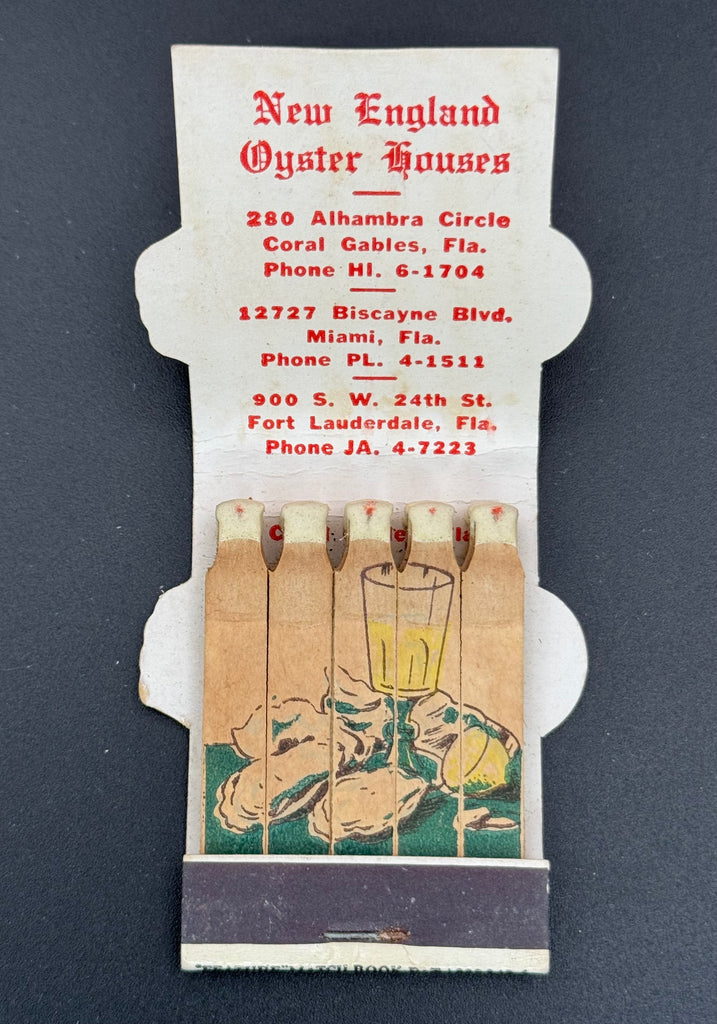 New England
Oyster Houses
280 Alhambra Circle
Coral Gables, Fla.
Phone HI. 6-1704
12727 Biscayne Blvd.
Miami, Fla.
Phone PL. 4-1511
900 S. W. 24th St.
Fort Lauderdale, Fla.
Phone JA. 4-7223
MATCH BOOK